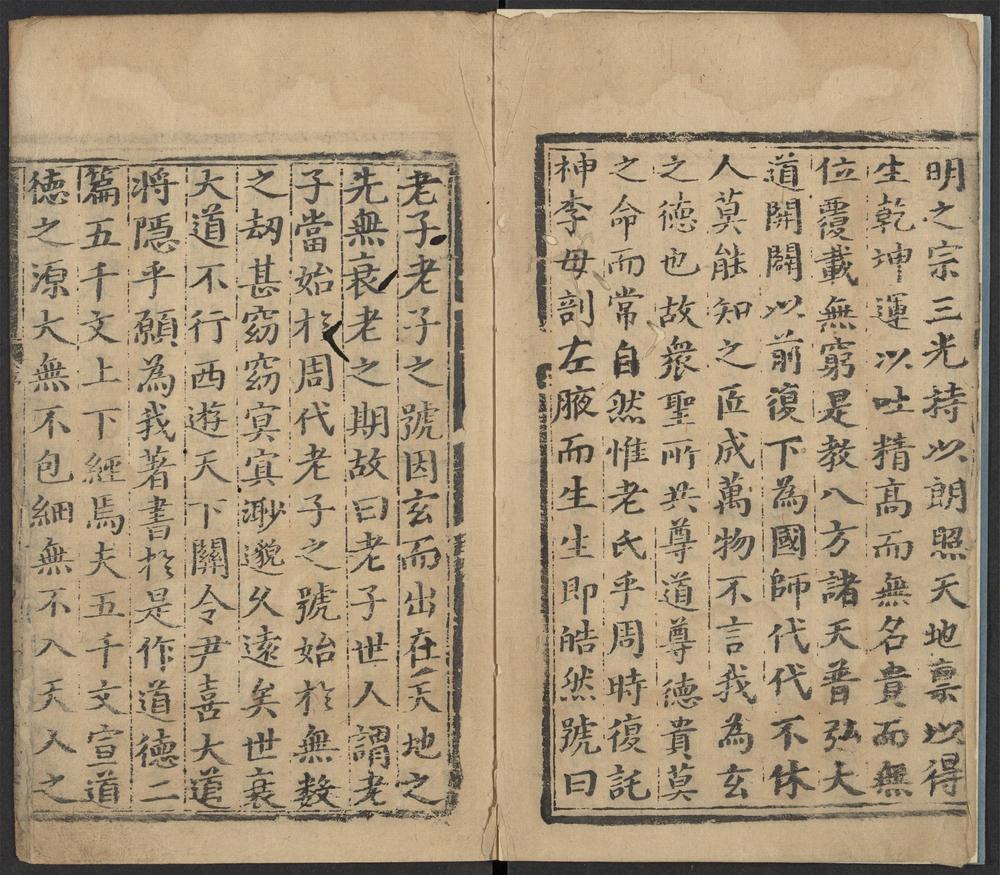 明之宗三光持以朗照天地稟以得
生乾坤運以吐精高而無名貴而無
位覆載無窮是教八方諸天普弘大
道開闢以前復下為國師代代不休
人莫能知之匠成萬物不言我為玄
之德也故衆聖所共尊道尊德貴莫
之命而常自然惟老氏乎周時復託
神李母剖左腋而生生即皓然號曰
老子老子之號因玄而出在天地之
先無衰老之期故曰老子世人謂老
子當始於周代老子之號始於無数
之刼甚窈窈冥冥渺邈久遠矣世衰
大道不行西遊天下關令尹喜大道
將隱乎願為我著書於是作道德二
篇五千文上下經焉夫五千文宣道
德之源大無不包細無不入天人之